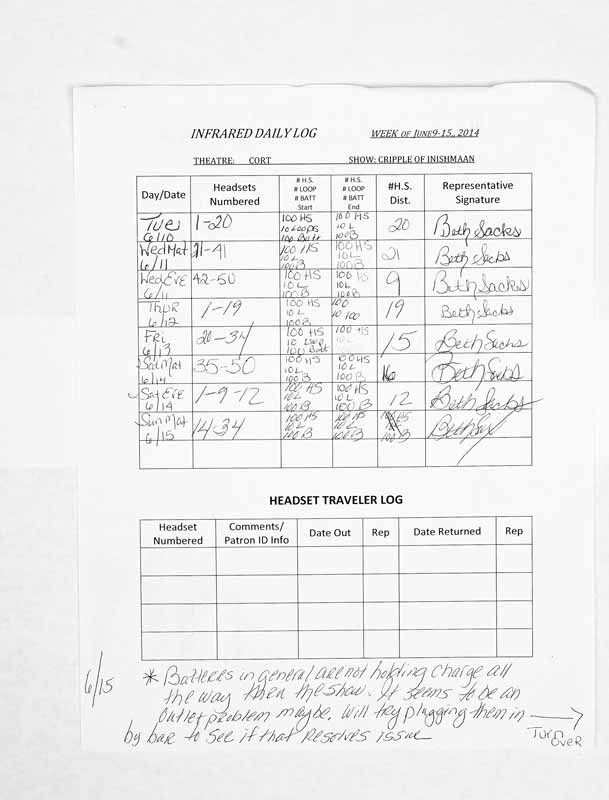 INFRARED DAILY LOG WEEK OF JUNE9-15., 2014
THEATRE: CORT SHOW: CRIPPLE OF INISHMAAN
Day/Date Headsets Numbered # H.S. # LOOP # BATT Start # H.S. # LOOP # BATT End #H.S. Dist. Representative Signature
Tues 6/10 1-20 100 HS 10 Loops 100 Batt 100 HS 10 L 100 B 20 Beth Sacks
Wed Mat 6/11 21-41 100 HS 10L 100B 100 HS 10L 100B 21 Beth Sacks
Wed Eve 6/11 42-50 100 HS 10L 100B 100 HS 10L 100B 9 Beth Sacks
Thur 6/12 1-19 100 HS 10L 100B 100 10 100 19 Beth Sacks
Fri 6/13 20-34 100 HS 10 Loop 100 Batt 100 HS 10 L 15 Beth Sacks
Sat Mat 6/14 35-50 100 HS 10L 100B 100 HS 10L 100B 16 Beth Sacks
Sat Eve 6/14 1-9-12 100 HS 10L 100B 100 HS 10L 100B 12 Beth Sacks
Sun Mat 6/15 14-34 100 HS 10L 100B 100 HS 10L 100B 100 B
HEADSET TRAVELER LOG
Headset Numbered Comments/ Patron ID Info Date Out Rep Date Returned Rep
6/15 * Batteres in general are not holding charge all
the way then the show. It seems to be an
outlet problem maybe. Will try plugging them in →
by bar to see if that resolves issue
Turn over